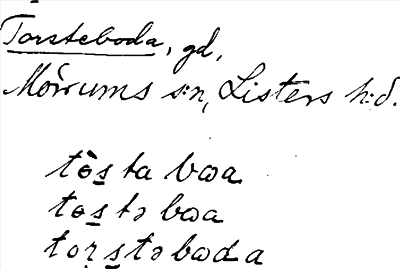 Torsteboda, gd,
Mörrums s:n, Listers h:d.
tòs̲ta bωa
tɵs̲tə bωa
toṛs̲təbωda